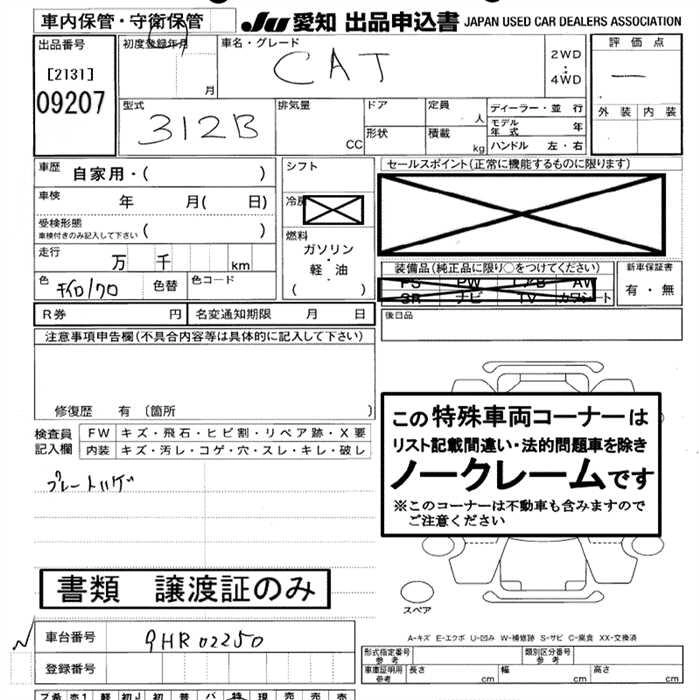 車内保管・守衛保管
JU 愛知 出品申込書 JAPAN USED CAR DEALERS ASSOCIATION
出品番号
[2131]
09207
初度登録年月
月
車名・グレード
CAT
2WD
・
4WD
評価点
―
外装 内装
型式
312B
排気量
CC
ドア
形状
定員
人
積載
kg
ディーラー・並行
モデル年式 年
ハンドル 左・右
車歴
自家用・( )
車検 年 月( 日)
受検形態
車検付きのみ記入して下さい ( )
走行 万 千 km
色
キイロ/クロ
色替
色コード
シフト
冷房
燃料
ガソリン
軽・油
( )
セールスポイント(正常に機能するものに限ります)
装備品(純正品に限り○をつけてください)
PS PW エアB AW
SR ナビ TV カワシート
新車保証書
有・無
R券 円
名変通知期限 月 日
後日品
注意事項申告欄(不具合内容等は具体的に記入して下さい)
修復歴 有〔箇所 〕
検査員
記入欄
FW キズ・飛石・ヒビ割・リペア跡・X要
内装 キズ・汚レ・コゲ・穴・スレ・キレ・破レ
プレートハゲ
この特殊車両コーナーは
リスト記載間違い・法的問題車を除き
ノークレームです
※このコーナーは不動車も含みますので
ご注意ください
書類 譲渡証のみ
スペア
A-キズ E-エクボ U-凹み W-補修跡 S-サビ C-腐食 XX-交換済
車台番号
9HR02250
登録番号
形式指定番号
参考
類別区分番号
参考
車庫証明用
参考
長さ cm 幅 cm 高さ cm